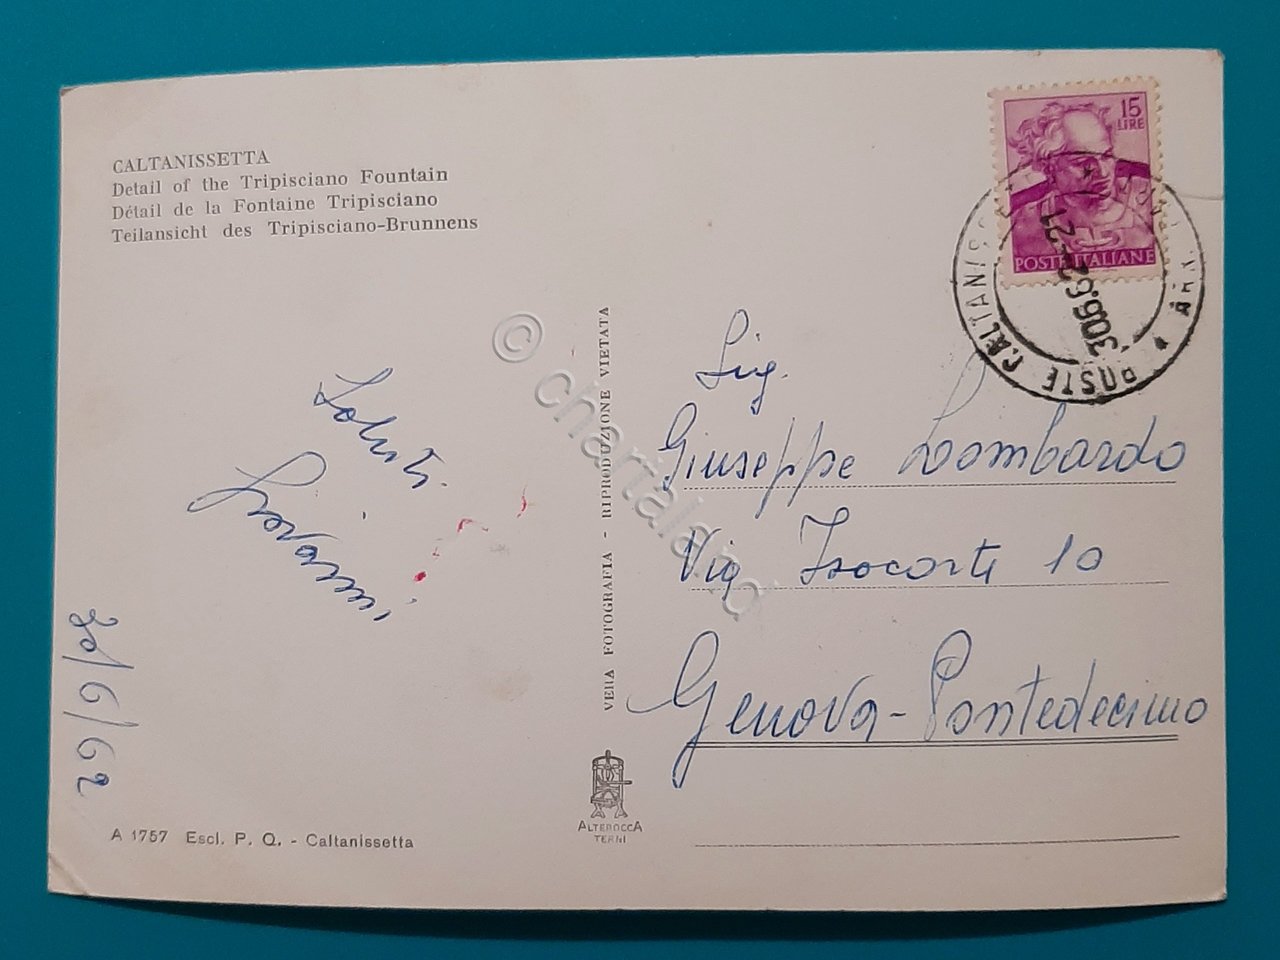 CALTANISSETTA
Detail of the Tripisciano Fountain
Détail de la Fontaine Tripisciano
Teilansicht des Tripisciano-Brunnens
15
LIRE
POSTE ITALIANE
POSTE CALTANISS
30.6.62-21
Saluti
Giovanni
30/6/62
VERA FOTOGRAFIA - RIPRODUZIONE VIETATA
Sig.
Giuseppe Lombardo
Via Isocorte 10
Genova-Pontedecimo
A 1757 Escl. P. Q. - Caltanissetta
ALTEROCCA
TERNI